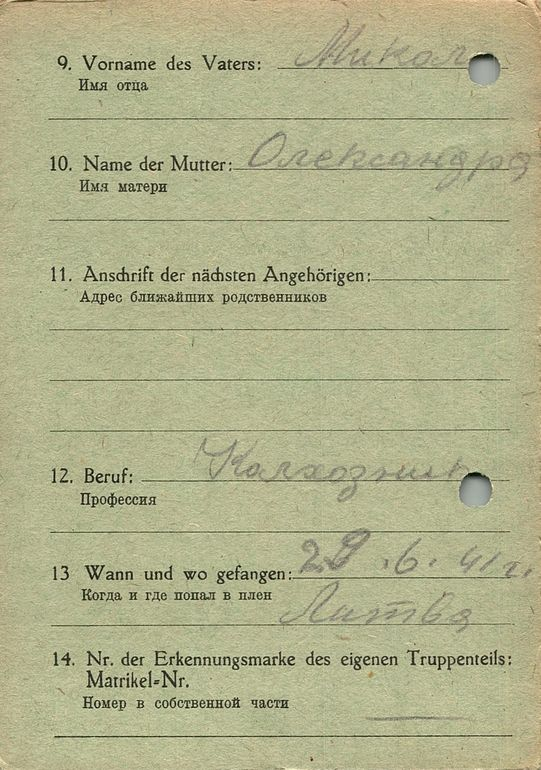 9. Vorname des Vaters: Микол
Имя отца
10. Name der Mutter: Олександра
Имя матери
11. Anschrift der nächsten Angehörigen:
Адрес ближайших родственников
12. Beruf: Калхозник
Профессия
13 Wann und wo gefangen: 29.6.41 г.
Когда и где попал в плен Литва
14. Nr. der Erkennungsmarke des eigenen Truppenteils:
Matrikel-Nr.
Номер в собственной части —